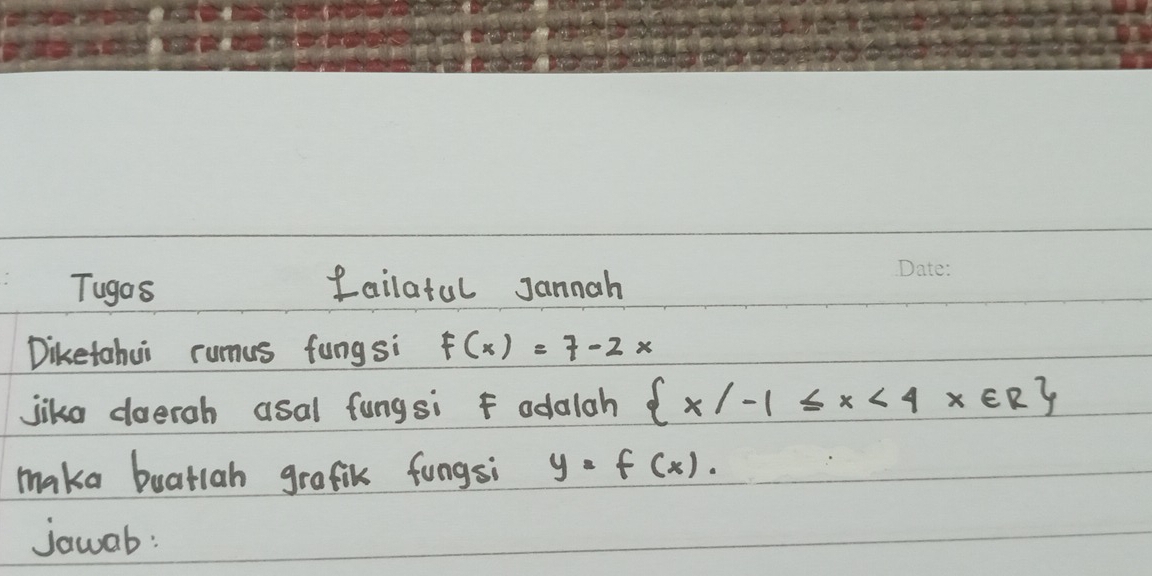 Tugas Lailatul Jannah Date:
Diketahui rumus fungsi f(x) = 7-2x
jika daerah asal fungsi f adalah { x/-1 ≤ x < 4 x ∈ R }
maka buatlah grafik fungsi y = f (x).
jawab: